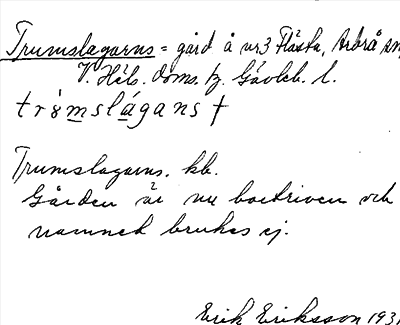 Trumslagarns = gård å nr 3 Flästa, Arbrå sn,
V. Häls. doms. tz. Gävleb. l.
trømslágans †
Trumslagarns. kb.
Gården är nu bortriven och
namnet brukas ej.
Erik Eriksson 1931